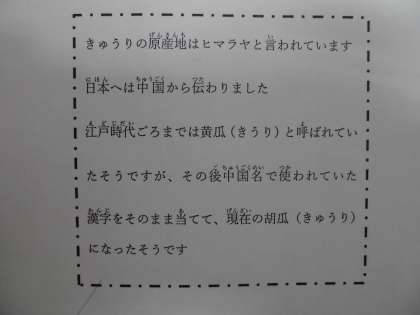 きゅうりの原産地はヒマラヤと言われています
日本へは中国から伝わりました
江戸時代ごろまでは黄瓜（きうり）と呼ばれてい
たそうですが、その後中国名で使われていた
漢字をそのまま当てて、現在の胡瓜（きゅうり）
になったそうです